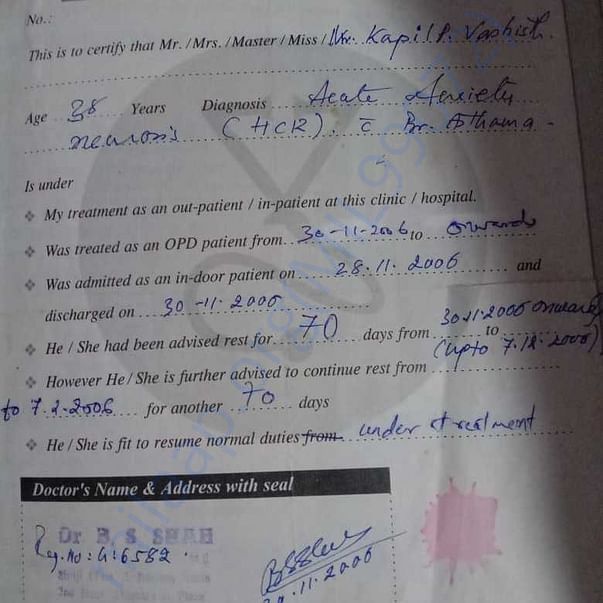 No.:
This is to certify that Mr. /Mrs. /Master / Miss / Mr. Kapil P. Vashist.
Age 38 Years Diagnosis Acute Anxiety
neurosis (HCR). c̄ Br. Asthama -
Is under
❖ My treatment as an out-patient / in-patient at this clinic / hospital.
❖ Was treated as an OPD patient from 30-11-2006 to onwards
❖ Was admitted as an in-door patient on 28.11.2006 and
discharged on 30-11-2006
30.11.2006 onwards
❖ He / She had been advised rest for 70 days from to
(upto 7.12.2006)
❖ However He / She is further advised to continue rest from
to 7.2.2006 for another 70 days
❖ He / She is fit to resume normal duties from under treatment
Doctor's Name & Address with seal
Dr. B. S. SHAH
Reg. No: G:6582
30.11.2006